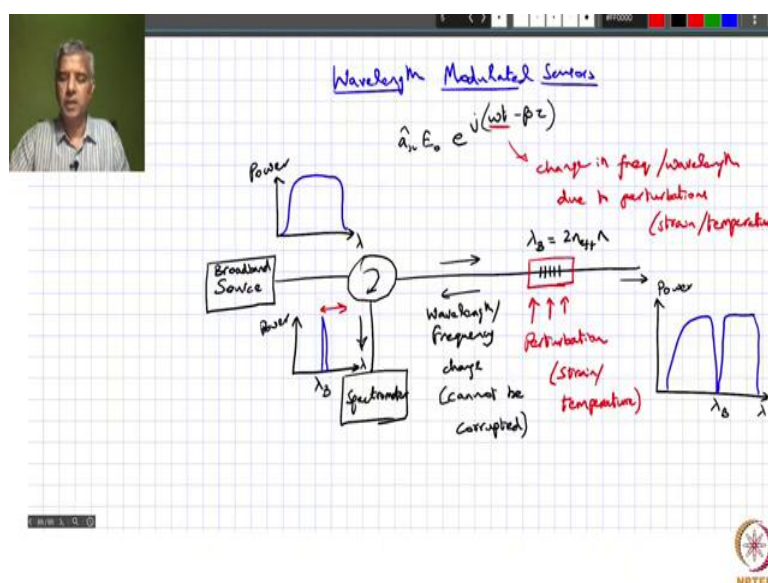 #FF0000
Wavelength Modulated Sensors
â E₀ e j(ωt - βz)
change in freq/wavelength
due to perturbations
(strain/temperature
Power
λ
λ_B = 2n_eff Λ
Broadband
Source
2
Power
λ
λ_B
Spectrometer
Wavelength/
Frequency
change
(cannot be
corrupted)
Perturbation
(strain/
temperature)
Power
λ_B
λ
NPTEL